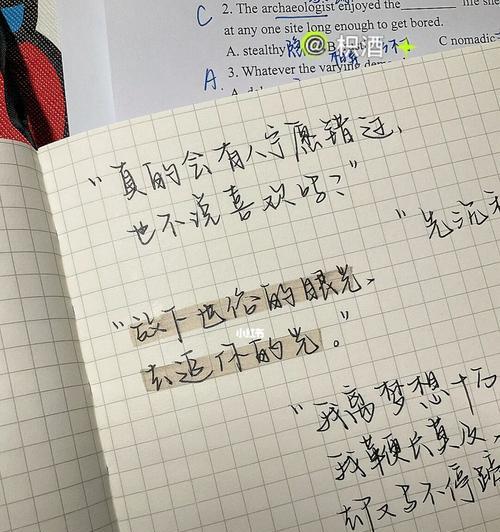 C 2. The archaeologist enjoyed the life sh
at any one site long enough to get bored.
A. stealthy 隐 B. C nomadic
@枳酒
A. 3. Whatever the varying dem
"真的会有人宁愿错过,
也不说喜欢吗?"
"先沉
"放下迭给的眼光,
小红书
去追你的光。"
"我离梦想十万
我鞭长莫及,
却又马不停蹄